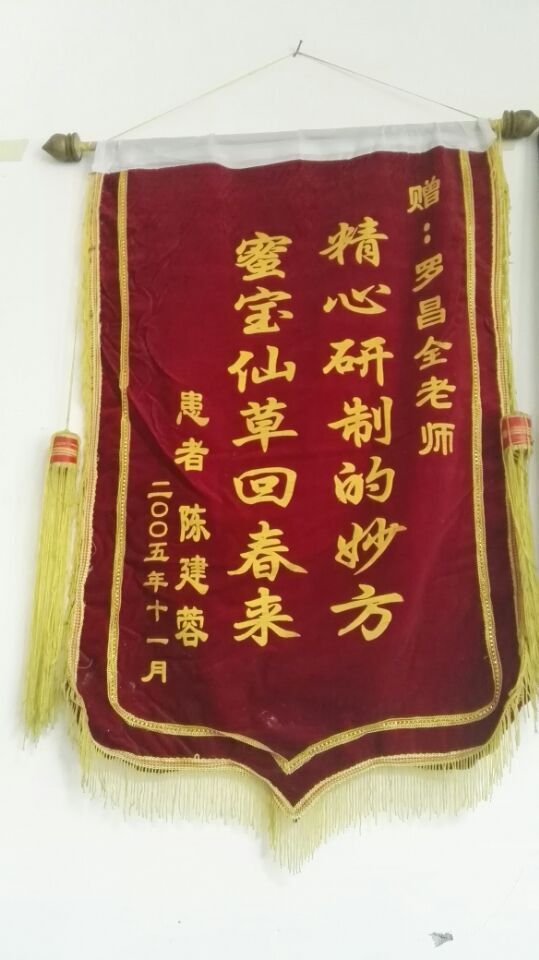 赠：罗昌全老师
精心研制的妙方
蜜宝仙草回春来
患者 陈建蓉
二〇〇五年十一月